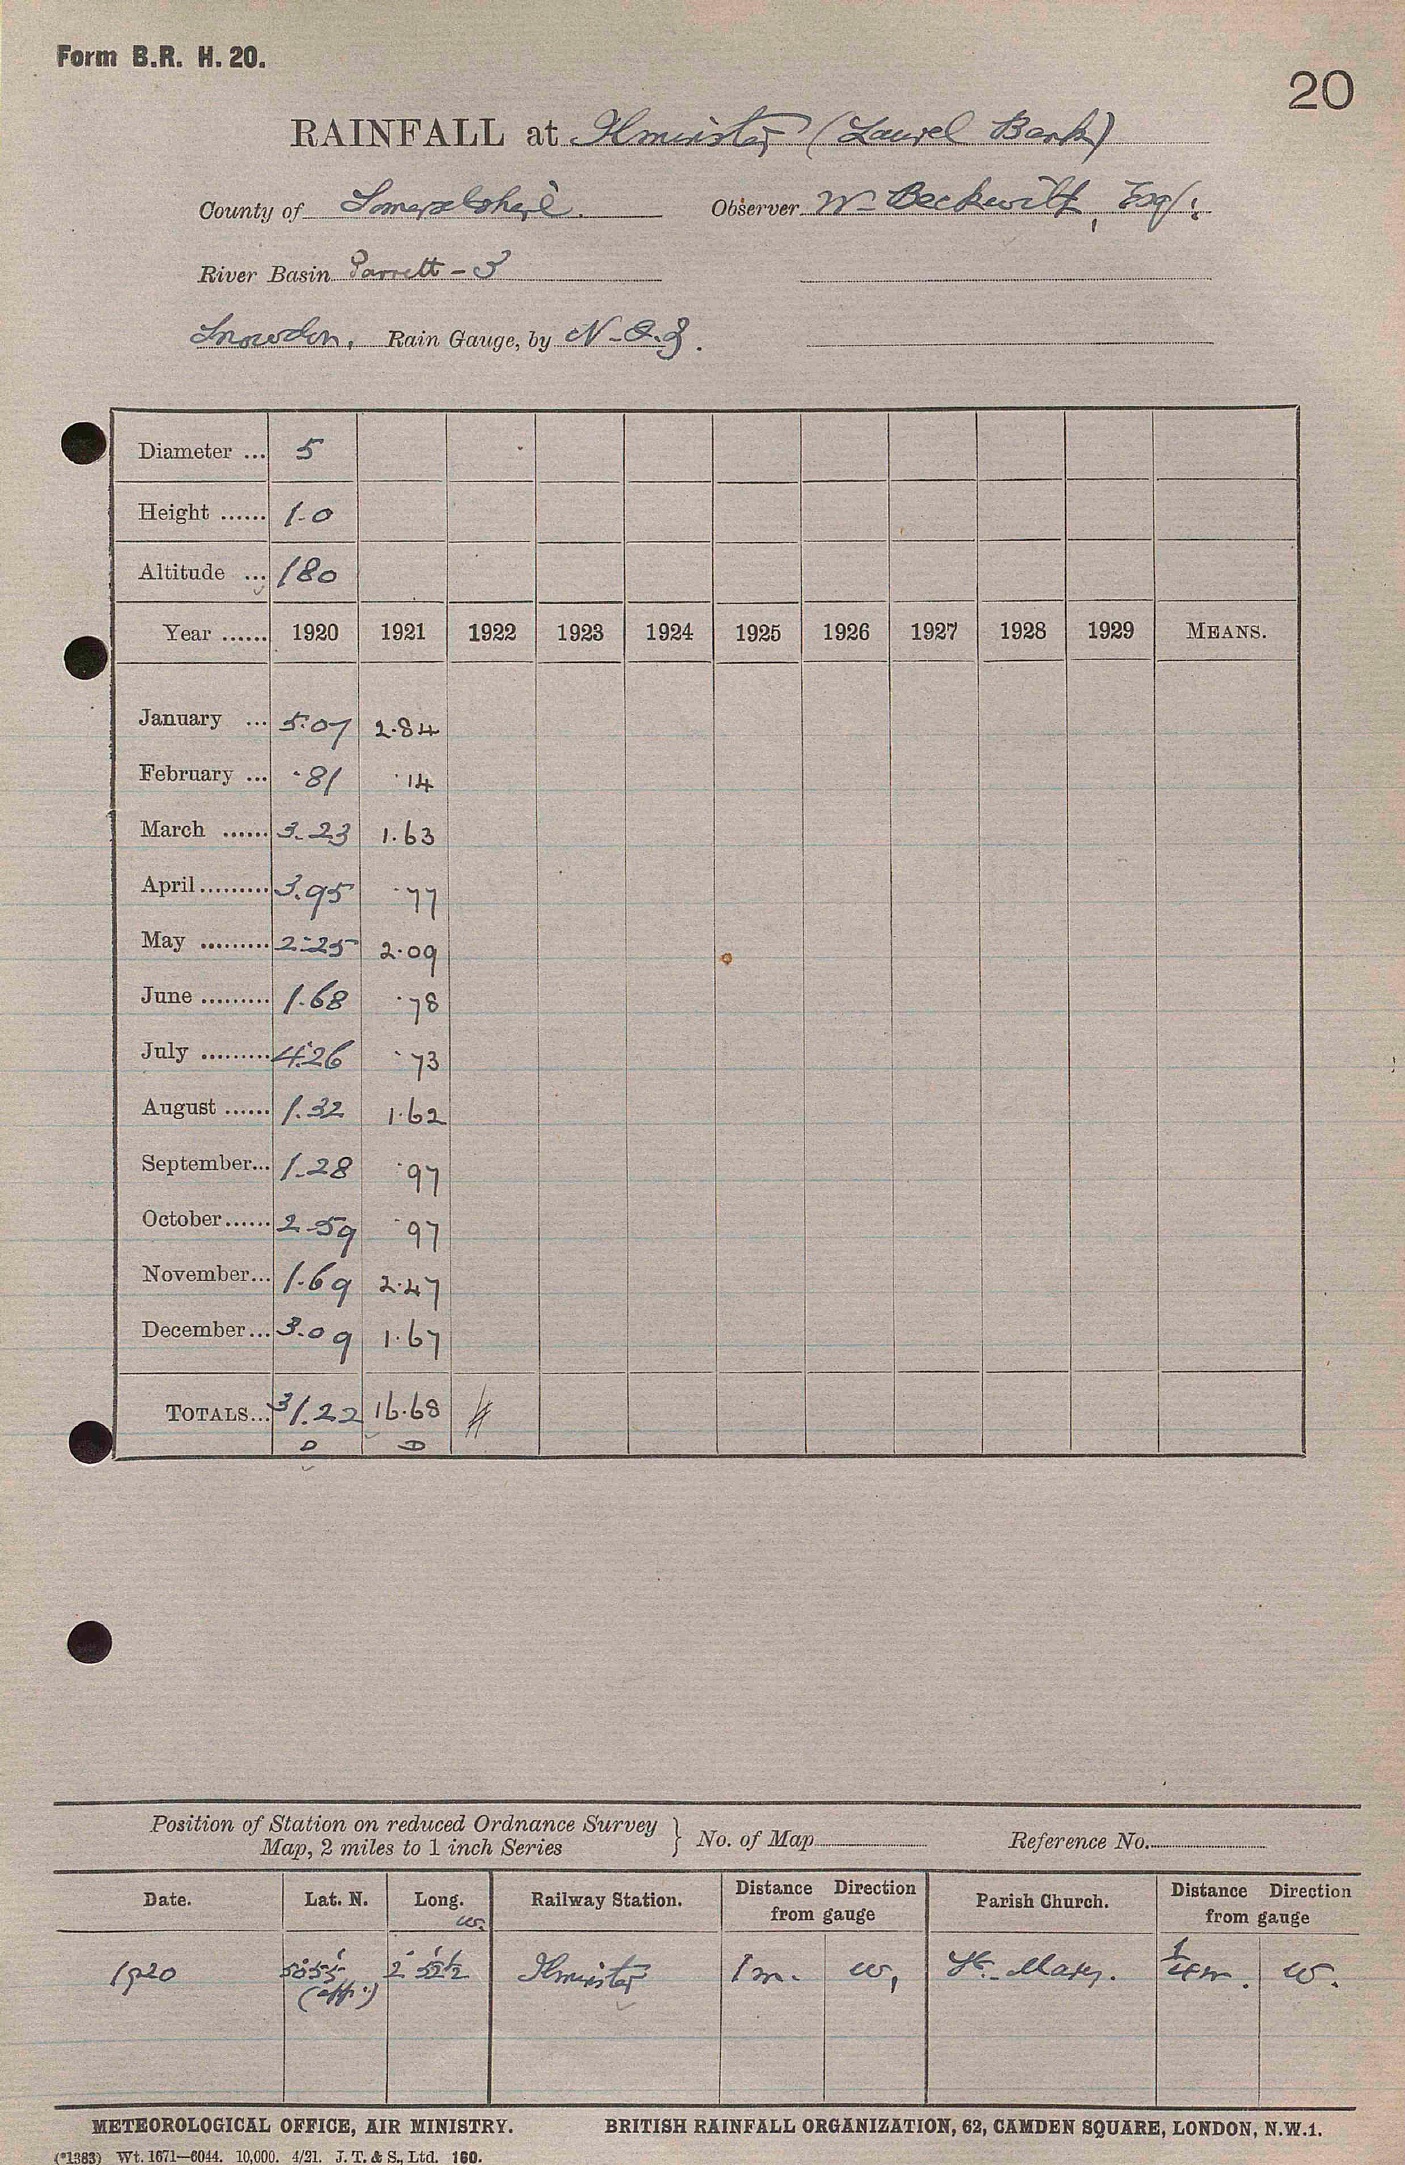 Form B.R. H. 20.
20
RAINFALL at Ilminster (Laurel Bank)
County of Somersetshire. Observer W. Beckwith, Esq:
River Basin Parrett - 3
Snowdon. Rain Gauge, by N & Z.
Diameter ... 5
Height ...... 1-0
Altitude ... 180
Year ...... 1920 1921 1922 1923 1924 1925 1926 1927 1928 1929 MEANS.
January ... 5.07 2.84
February ... .81 .14
March ...... 3.23 1.63
April ......... 3.95 .77
May ......... 2.25 2.09
June ......... 1.68 .78
July ......... 4.26 .73
August ...... 1.32 1.62
September... 1.28 .97
October...... 2.59 .97
November... 1.69 2.47
December... 3.09 1.67
TOTALS... 31.22 16.68
D D
Position of Station on reduced Ordnance Survey
Map, 2 miles to 1 inch Series } No. of Map Reference No.
Date. Lat. N. Long. W. Railway Station. Distance Direction from gauge Parish Church. Distance Direction from gauge
1920 50° 55' (app.) 2° 52'½ Ilminster 1 m. W. St. Mary. ¼ m. W.
METEOROLOGICAL OFFICE, AIR MINISTRY. BRITISH RAINFALL ORGANIZATION, 62, CAMDEN SQUARE, LONDON, N.W.1.
(*1383) Wt. 1671—6044. 10,000. 4/21. J. T. & S., Ltd. 160.